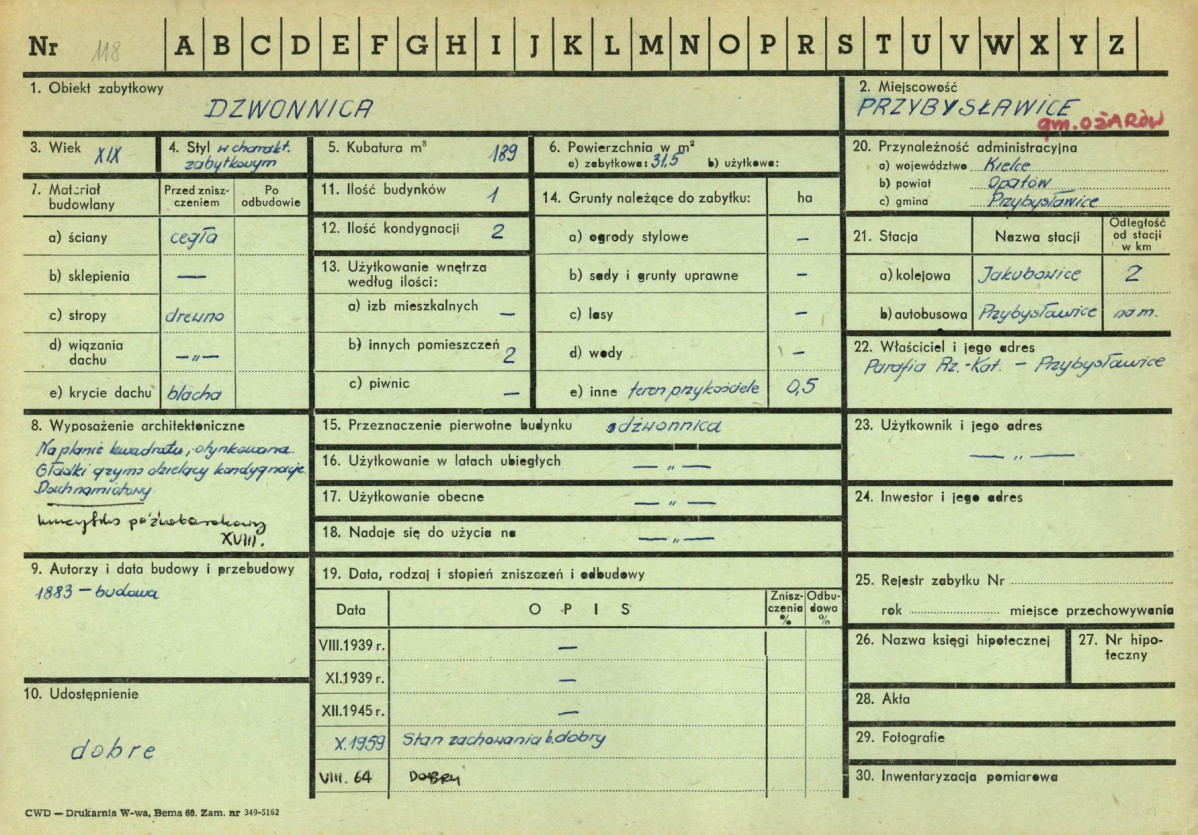 Nr 118 A B C D E F G H I J K L M N O P R S T U V W X Y Z
1. Obiekt zabytkowy
DZWONNICA
2. Miejscowość
PRZYBYSŁAWICE
gm. OŻARÓW
3. Wiek XIX
4. Styl w charakt.
zabytkowym
5. Kubatura m³ 189
6. Powierzchnia w m²
a) zabytkowa: 31,5 b) użytkowa:
20. Przynależność administracyjna
a) województwo Kielce
b) powiat Opatów
c) gmina Przybysławice
7. Materiał
budowlany
Przed znisz-
czeniem
Po
odbudowie
a) ściany cegła
b) sklepienia —
c) stropy drewno
d) wiązania
dachu —„—
e) krycie dachu blacha
11. Ilość budynków 1
12. Ilość kondygnacji 2
13. Użytkowanie wnętrza
według ilości:
a) izb mieszkalnych —
b) innych pomieszczeń 2
c) piwnic —
14. Grunty należące do zabytku: ha
a) ogrody stylowe —
b) sady i grunty uprawne —
c) lasy —
d) wody —
e) inne teren przykościele 0,5
21. Stacja Nazwa stacji
Odległość
od stacji
w km
a) kolejowa Jakubowice 2
b) autobusowa Przybysławice na m.
22. Właściciel i jego adres
Parafia Rz.-Kat. — Przybysławice
8. Wyposażenie architektoniczne
Na planie kwadratu, otynkowana.
Gładki gzyms dzielący kondygnacje
Dach namiotowy.
krucyfiks późnobarokowy
XVIII.
15. Przeznaczenie pierwotne budynku dzwonnica
16. Użytkowanie w latach ubiegłych —„—
17. Użytkowanie obecne —„—
18. Nadaje się do użycia na —„—
23. Użytkownik i jego adres
—„—
24. Inwestor i jego adres
9. Autorzy i data budowy i przebudowy
1883 — budowa
10. Udostępnienie
dobre
19. Data, rodzaj i stopień zniszczeń i odbudowy
Data OPIS
Znisz-
czenia
%
Odbu-
dowa
%
VIII.1939 r. —
XI.1939 r. —
XII.1945 r. —
X.1959 Stan zachowania b. dobry
VIII. 64 DOBRY
25. Rejestr zabytku Nr
rok miejsce przechowywania
26. Nazwa księgi hipotecznej
27. Nr hipo-
teczny
28. Akta
29. Fotografie
30. Inwentaryzacja pomiarowa
CWD — Drukarnia W-wa, Bema 60. Zam. nr 349-5162